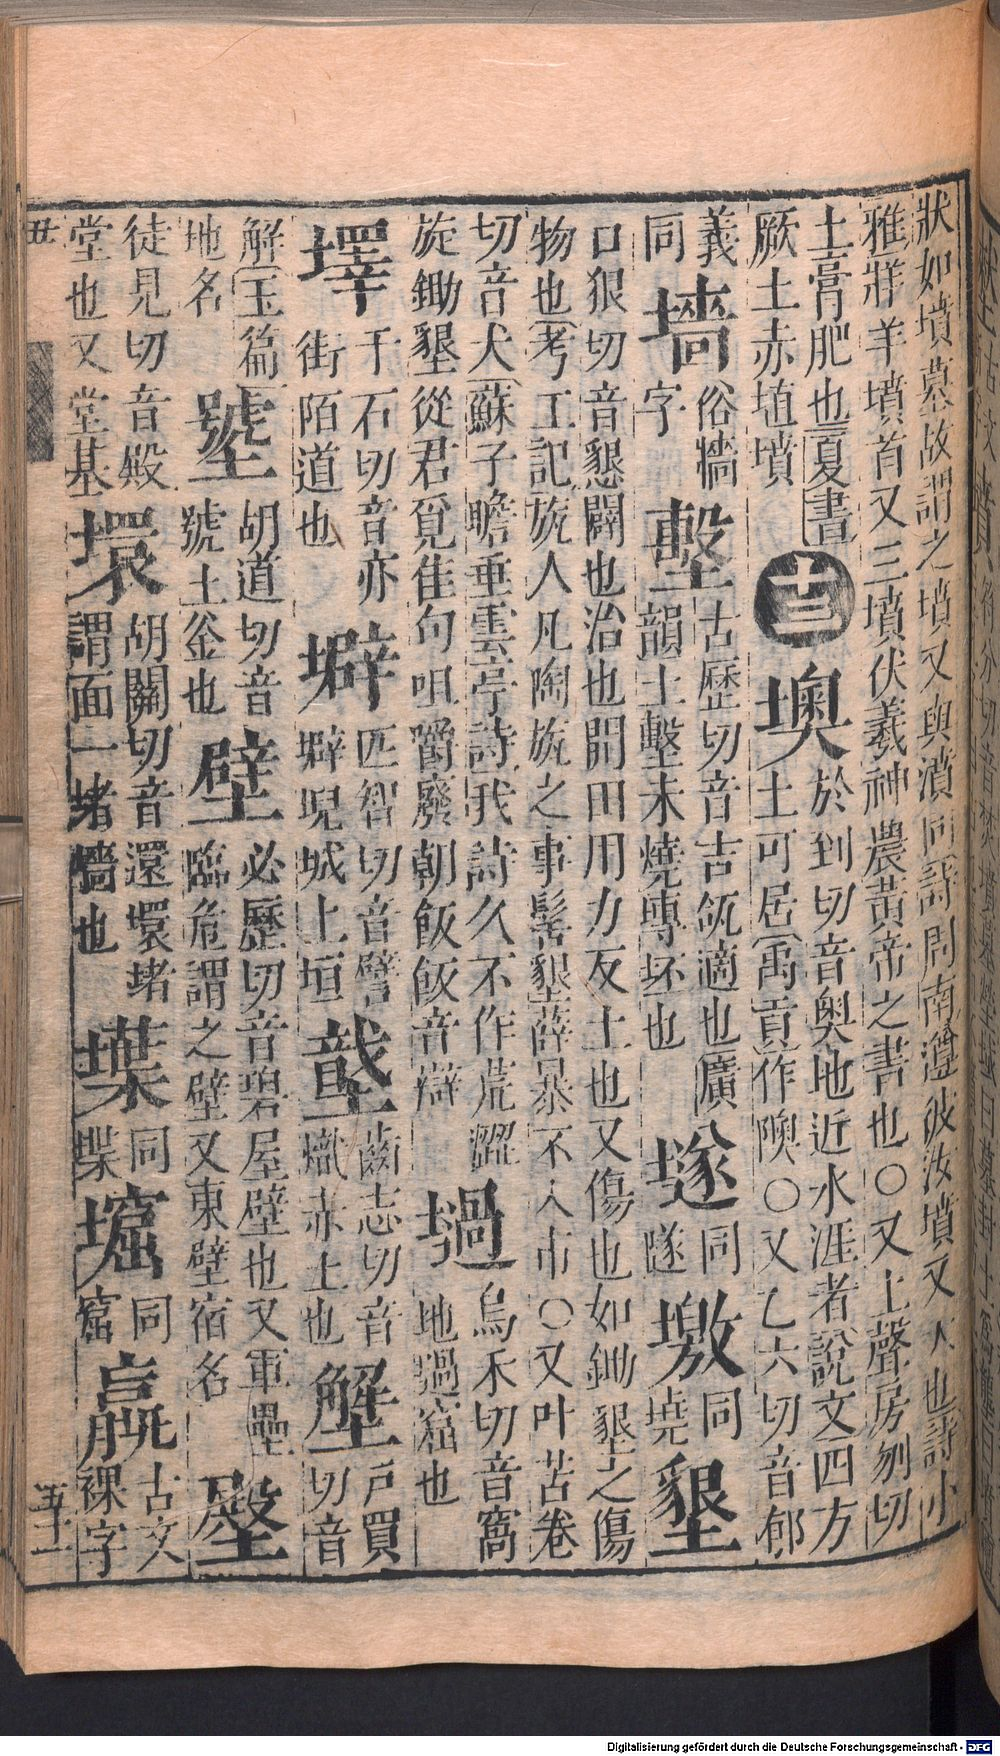 狀如墳墓故謂之墳又與濆同詩周南遵彼汝墳又人也詩小
雅牂羊墳首又三墳伏羲神農黃帝之書也○又上聲房刎切
土膏肥也夏書
厥土赤埴墳
十三
墺
於到切音奥地近水涯者說文四方
土可居禹貢作隩○又乙六切音郁
義
同
墻
俗牆
字
墼
古歷切音吉瓴適也廣
韻土墼未燒塼坯也
𡑞
同
隧
墽
同
墝
墾
口狠切音懇闢也治也開田用力反土也又傷也如鋤墾之傷
物也考工記旊人凡陶旊之事髺墾薜暴不入市○又叶苦卷
切音犬蘇子瞻垂雲亭詩我詩久不作荒澀
旋鋤墾從君覓佳句咀嚼廢朝飯飯音辯
㙵
烏禾切音窩
地㙵窟也
墿
于石切音亦
街陌道也
壀
匹智切音譬
壀堄城上垣
𡑌
齒志切音
熾赤土也
𡑖
戶買
切音
解玉篇
地名
㙱
胡道切音
號土釜也
壁
必歷切音碧屋壁也又軍壘
臨危謂之壁又東壁宿名
壂
徒見切音殿
堂也又堂基
環
胡關切音還環堵
謂面一堵牆也
㙪
同
堞
𡑣
同
窟
𦝠
古文
裸字
丑
五十一
Digitalisierung gefördert durch die Deutsche Forschungsgemeinschaft - DFG